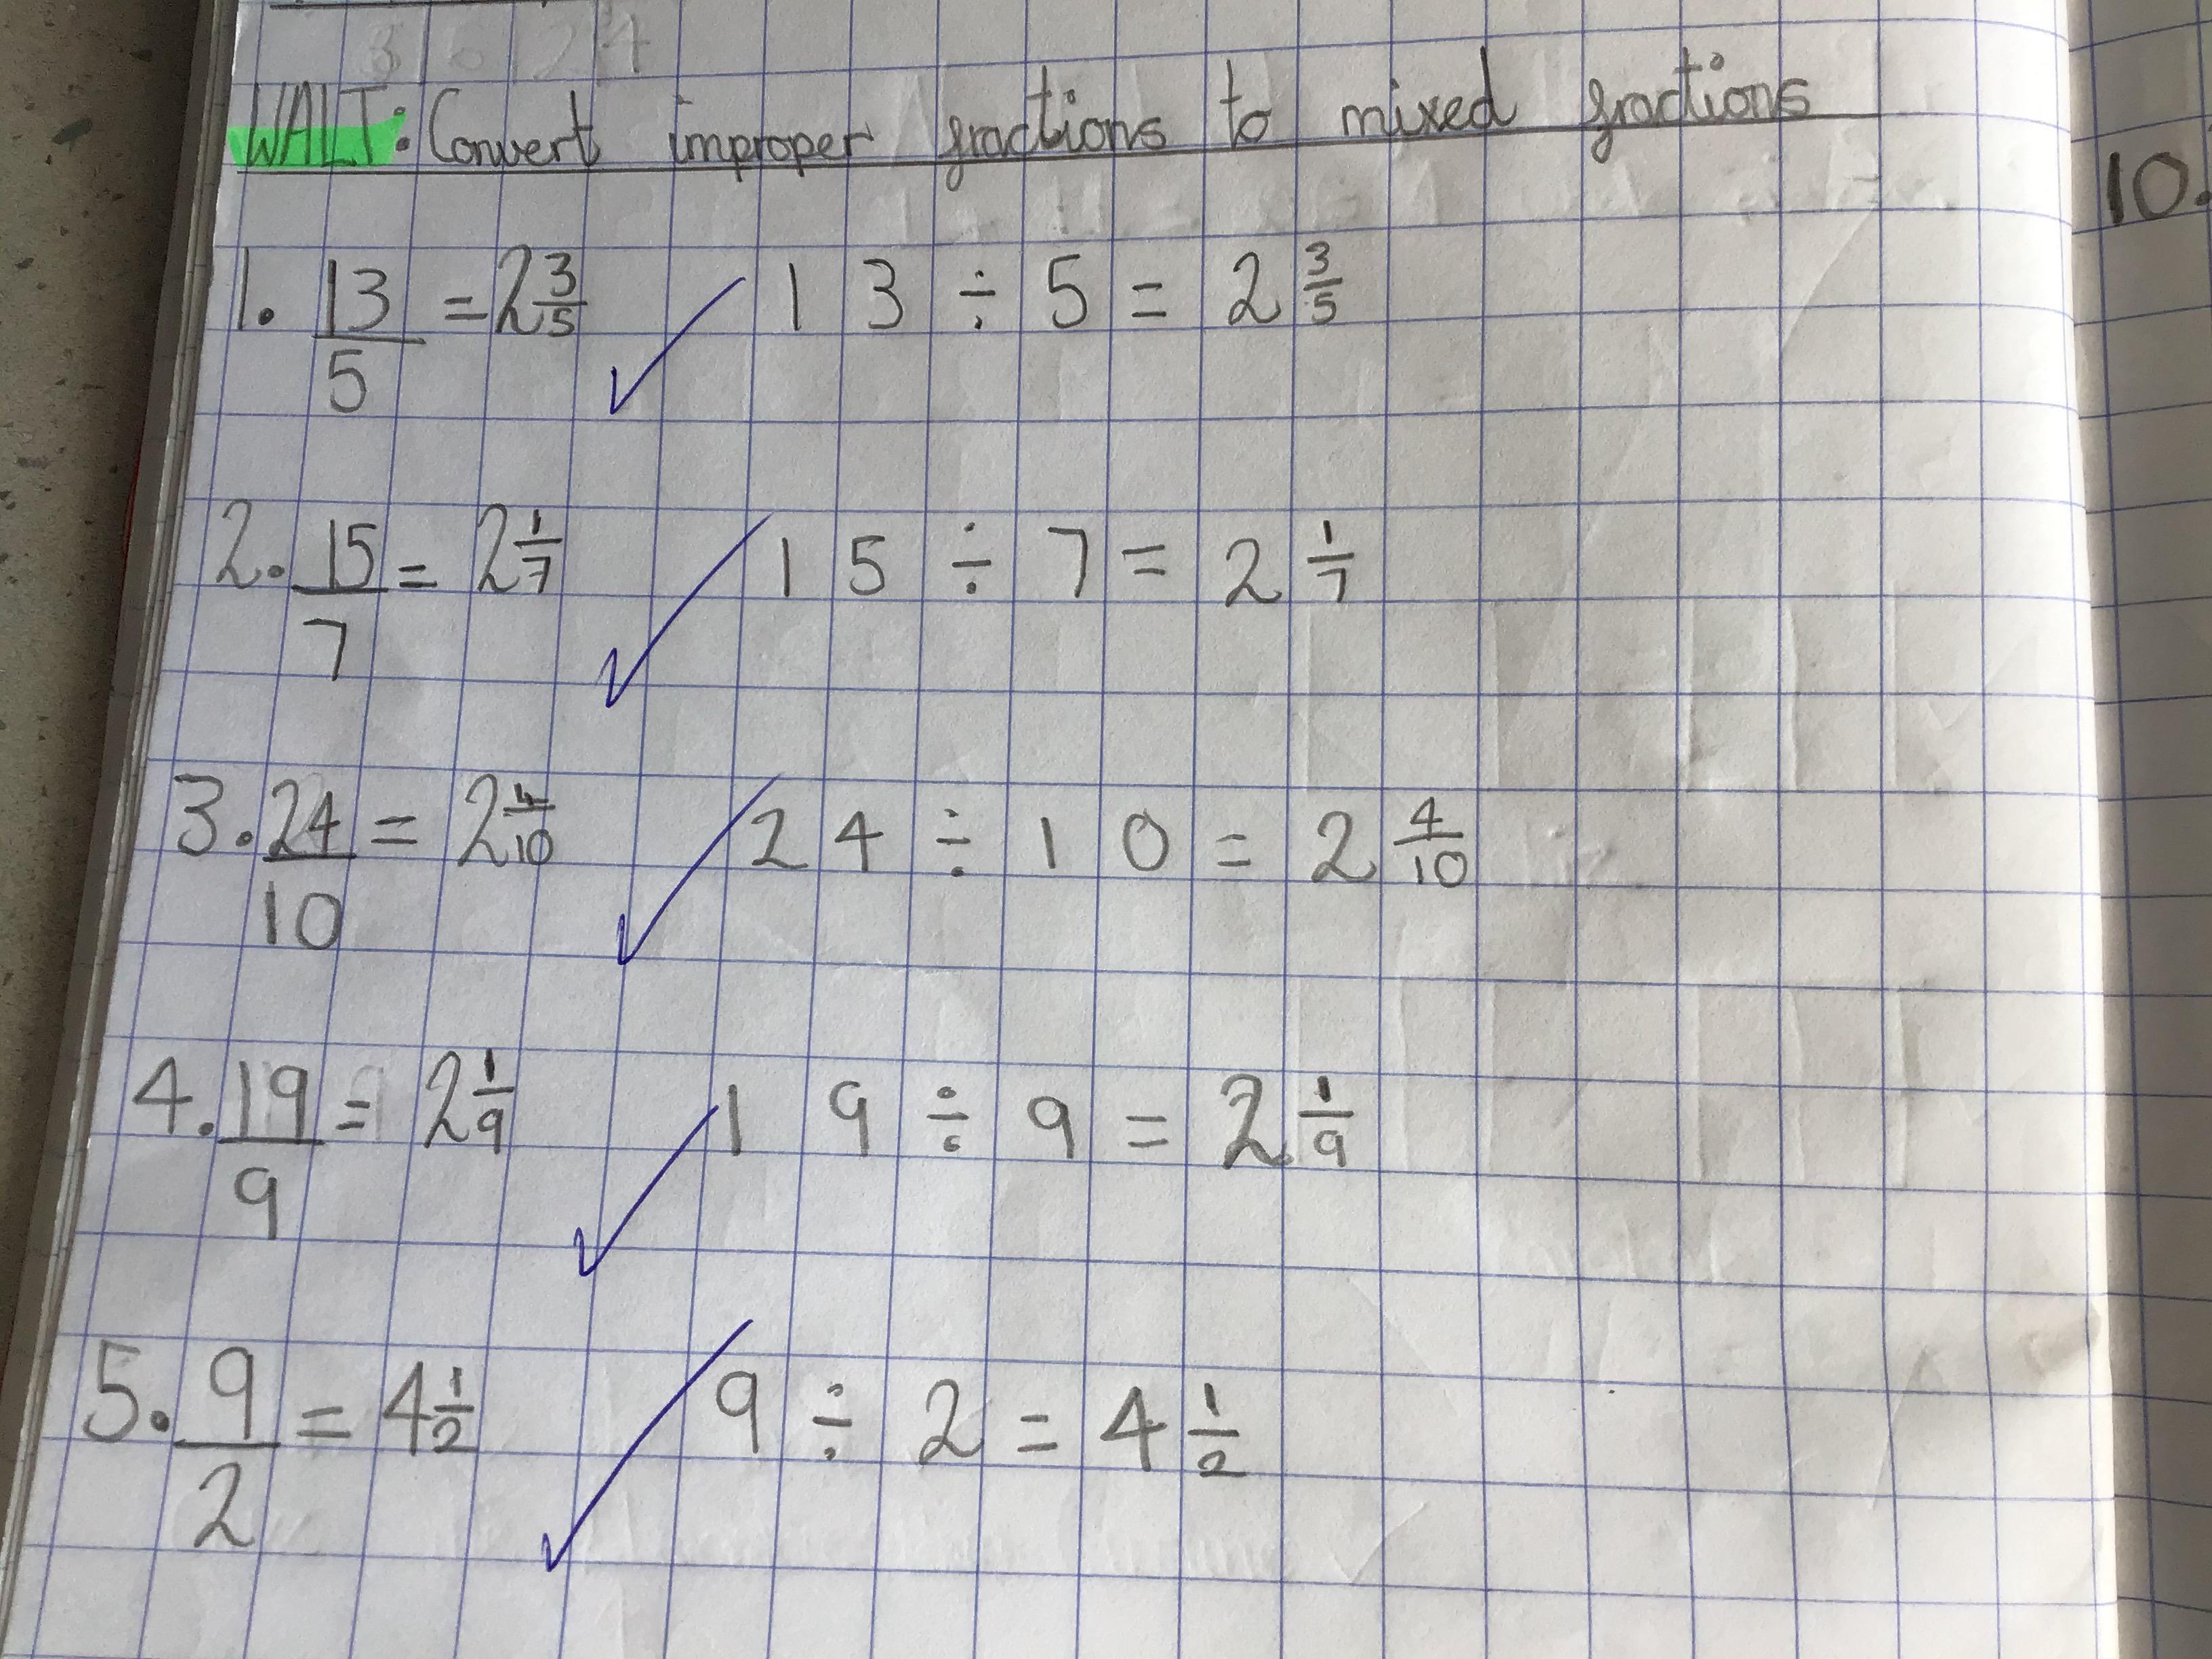 WALT: Convert improper fractions to mixed fractions
10.
1. 13/5 = 2 3/5 13 ÷ 5 = 2 3/5
2. 15/7 = 2 1/7 15 ÷ 7 = 2 1/7
3. 24/10 = 2 4/10 24 ÷ 10 = 2 4/10
4. 19/9 = 2 1/9 19 ÷ 9 = 2 1/9
5. 9/2 = 4 1/2 9 ÷ 2 = 4 1/2